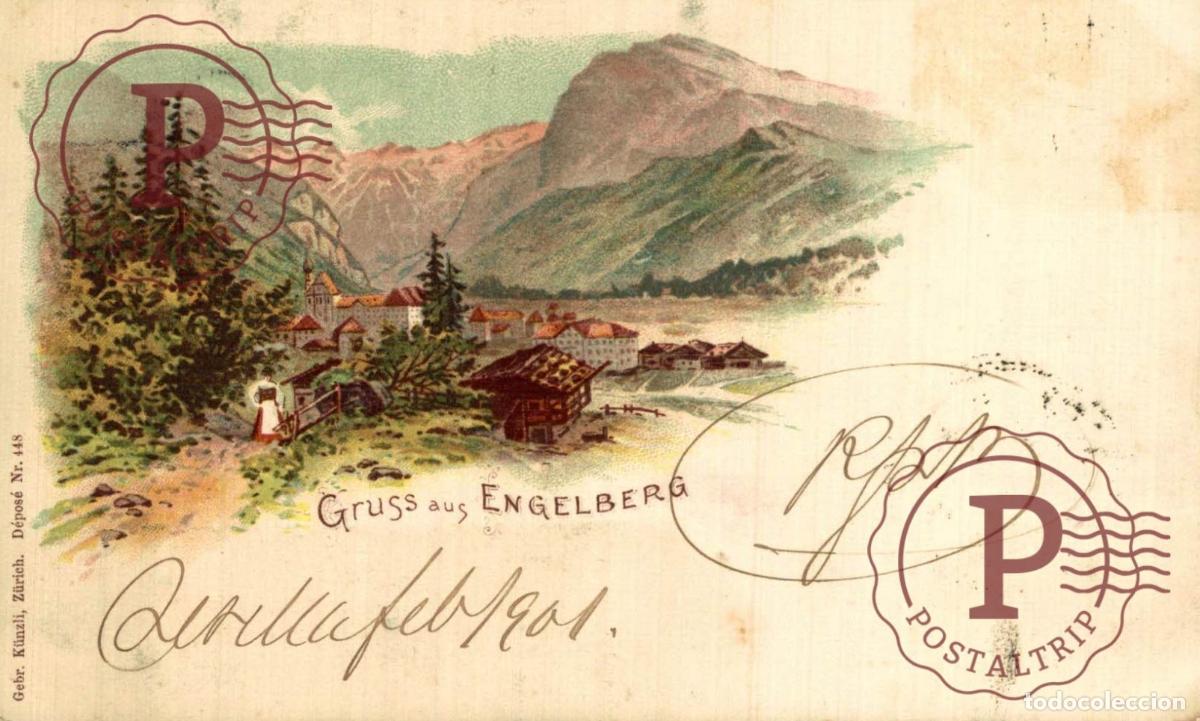 P
POSTALTRIP
Gruss aus ENGELBERG
Sevilla feb/901.
P
POSTALTRIP
Gebr. Künzli, Zürich. Déposé Nr. 448
todocoleccion